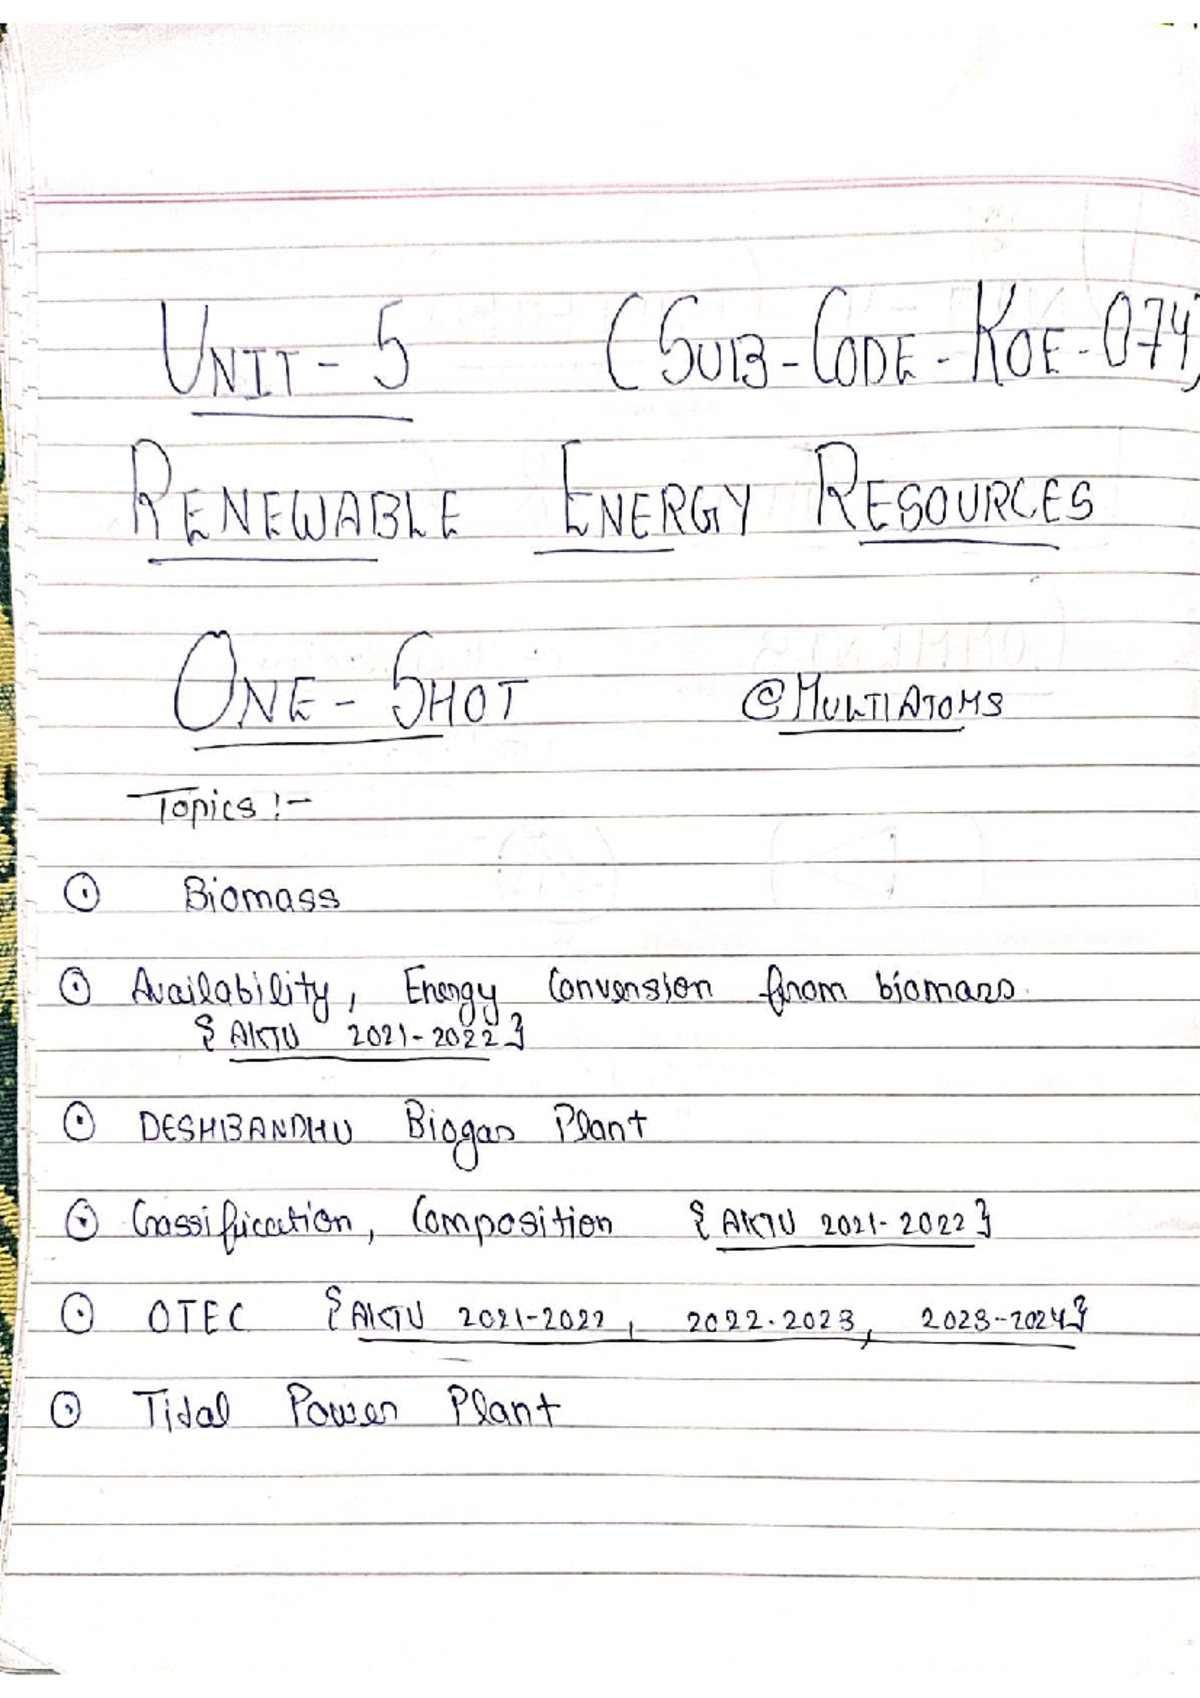 UNIT - 5 (SUB - CODE - KOE - 074)
RENEWABLE ENERGY RESOURCES
ONE - SHOT @MULTIATOMS
Topics :-
⊙ Biomass
⊙ Availability, Energy Conversion from biomass.
{ AKTU 2021-2022 }
⊙ DESHBANDHU Biogas Plant
⊙ Classification, Composition { AKTU 2021-2022 }
⊙ OTEC { AKTU 2021-2022, 2022-2023, 2023-2024 }
⊙ Tidal Power Plant